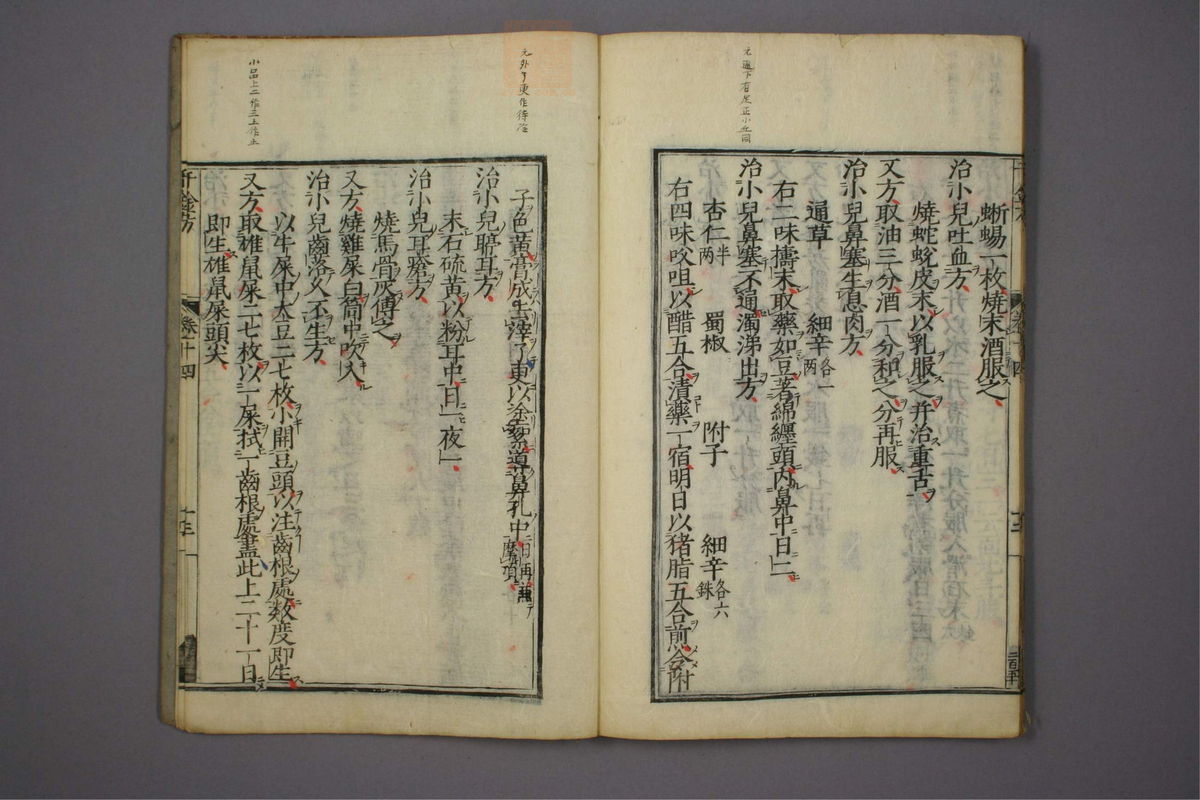 元通下有足正小丘同
蜥蜴一枚燒末酒服之
治小兒吐血方
燒蛇蛻皮末以乳服之并治重舌
又方取油三分酒一分和之分再服
治小兒鼻塞生息肉方
通草 細辛各一兩
右二味擣末取藥如豆著綿纏頭內鼻中日二
治小兒鼻塞不通濁涕出方
杏仁半兩 蜀椒 附子 細辛各六銖
右四味㕮咀以醋五合漬藥一宿明日以猪脂五合煎令附
元外了更作待冷
子色黃膏成去滓了更以塗絮導鼻孔中日再兼摩頂
治小兒聤耳方
末石硫黃以粉耳中日一夜一
治小兒耳瘡方
燒馬骨灰傅之
又方燒雞屎白筒中吹入
治小兒齒落久不生方
以牛屎中大豆二七枚小開豆頭以注齒根處數度即生
又方取雄鼠屎二七枚以一屎拭一齒根處盡此上二十一日
即生雄鼠屎頭尖
小品上二作三上作止
千金方 卷十四 十三